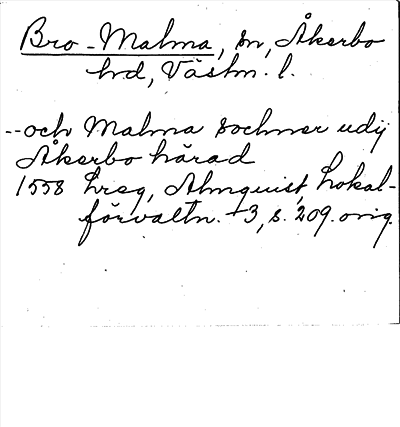 Bro-Malma, sn, Åkerbo
hd, Västm. l.
--och Malma sochner udij
Åkerbo härad
1558 Lreg, Almquist, Lokal-
förvaltn. 3, s. 209. orig.